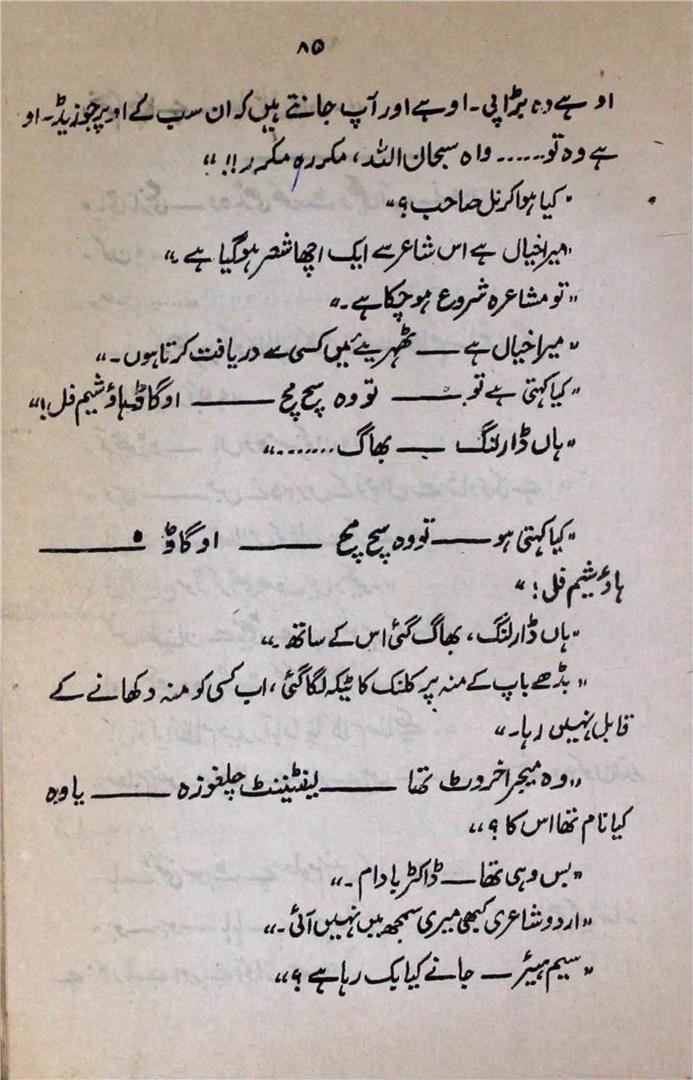 ۸۵
او ہے وہ بڑا پی۔ او ہے اور آپ جانتے ہیں کہ ان سب کے اوپر جوزیڈ۔ او
ہے وہ تو...... واہ سبحان اللہ، مکررہ مکرر!!"
"کیا ہوا کرنل صاحب؟"
"میرا خیال ہے اس شاعر سے ایک اچھا شعر ہو گیا ہے۔"
"تو مشاعرہ شروع ہو چکا ہے۔"
"میرا خیال ہے — ٹھہریئے میں کسی سے دریافت کرتا ہوں۔"
"کیا کہتی ہے تو — تو وہ سچ مچ — او گاڈ ہاؤ شیم فل!"
"ہاں ڈارلنگ — بھاگ ......."
"کیا کہتی ہو — تو وہ سچ مچ — او گاڈ —
ہاؤ شیم فل!"
"ہاں ڈارلنگ، بھاگ گئی اس کے ساتھ۔"
"بڈھے باپ کے منہ پر کلنک کا ٹیکہ لگا گئی، اب کسی کو منہ دکھانے کے
قابل نہیں رہا۔"
"وہ میجر اخروٹ تھا — لیفٹیننٹ چلغوزہ — یا وہ
کیا نام تھا اس کا؟"
"بس وہی تھا — ڈاکٹر بادام۔"
"اردو شاعری کبھی میری سمجھ میں نہیں آئی۔"
"سیم ہیئر — جانے کیا بک رہا ہے؟"